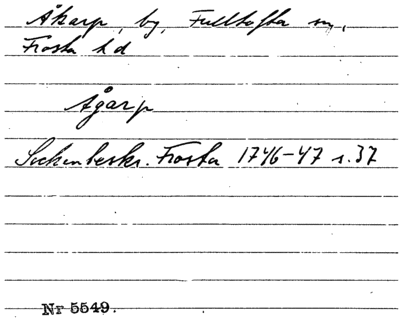 Åkarp, by, Fulltofta sn,
Frosta hd
Ågarp
Sockenbeskr. Frosta 1746-47 s. 37
Nr 5549.